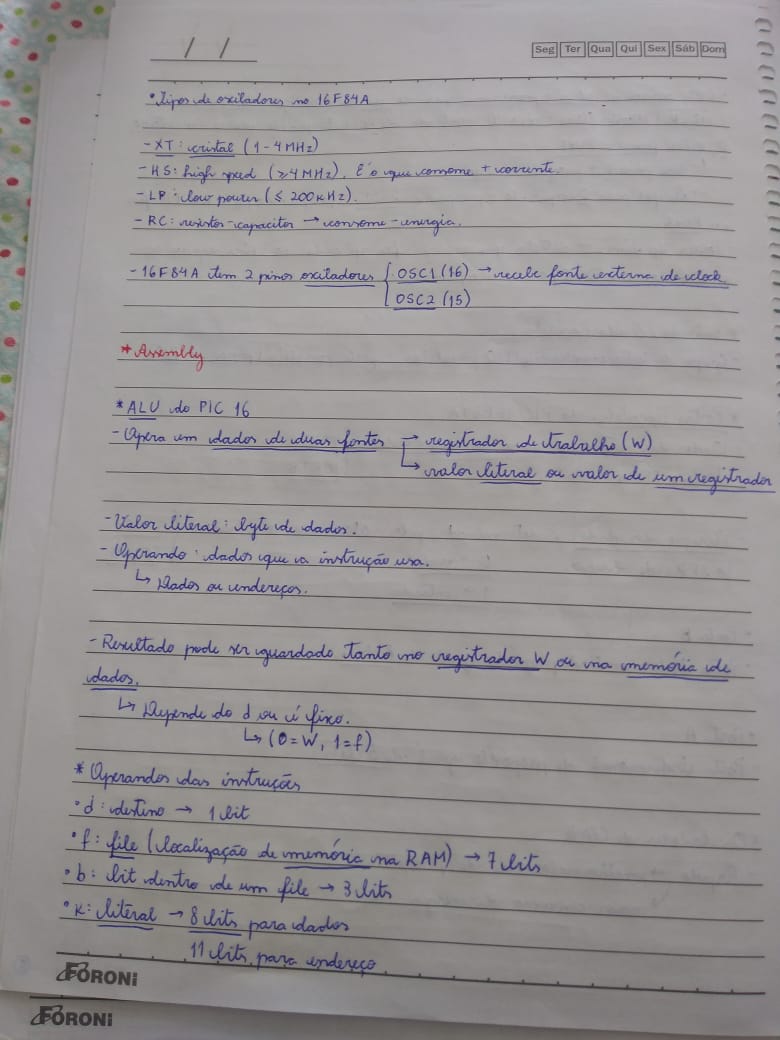 / /
Seg Ter Qua Qui Sex Sáb Dom
• Tipos de oxiladores no 16F84A
- XT: cristal (1-4 MHz)
- HS: high speed (≥4 MHz). É o que consome + corrente.
- LP: low power (≤ 200KHz).
- RC: resistor-capacitor → consome - energia.
- 16F84A tem 2 pinos oxiladores { OSC1 (16) → recebe fonte externa de clock
OSC2 (15)
* Assembly
* ALU do PIC 16
- Opera em dados de duas fontes → registrador de trabalho (W)
↳ valor literal ou valor de um registrador
- Valor literal: byte de dados.
- Operando: dados que a instrução usa.
↳ Dados ou endereços.
- Resultado pode ser guardado tanto no registrador W ou na memória de
dados.
↳ Depende do d ou é fixo.
↳ (0=W, 1=f)
* Operandos das instruções
• d: destino → 1 bit
• f: file (localização de memória na RAM) → 7 bits
• b: bit dentro de um file → 3 bits
• k: literal → 8 bits para dados
11 bits para endereço
FORONI
FORONI